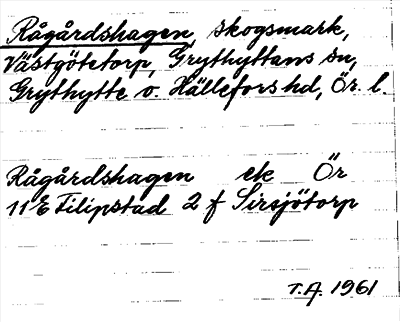 Rågårdshagen, skogsmark,
Västgötetorp, Grythyttans sn,
Grythytte o. Hällefors hd, Ör. l.
Rågårdshagen ek Ör
11 E Filipstad 2 f Sirsjötorp
T.A. 1961